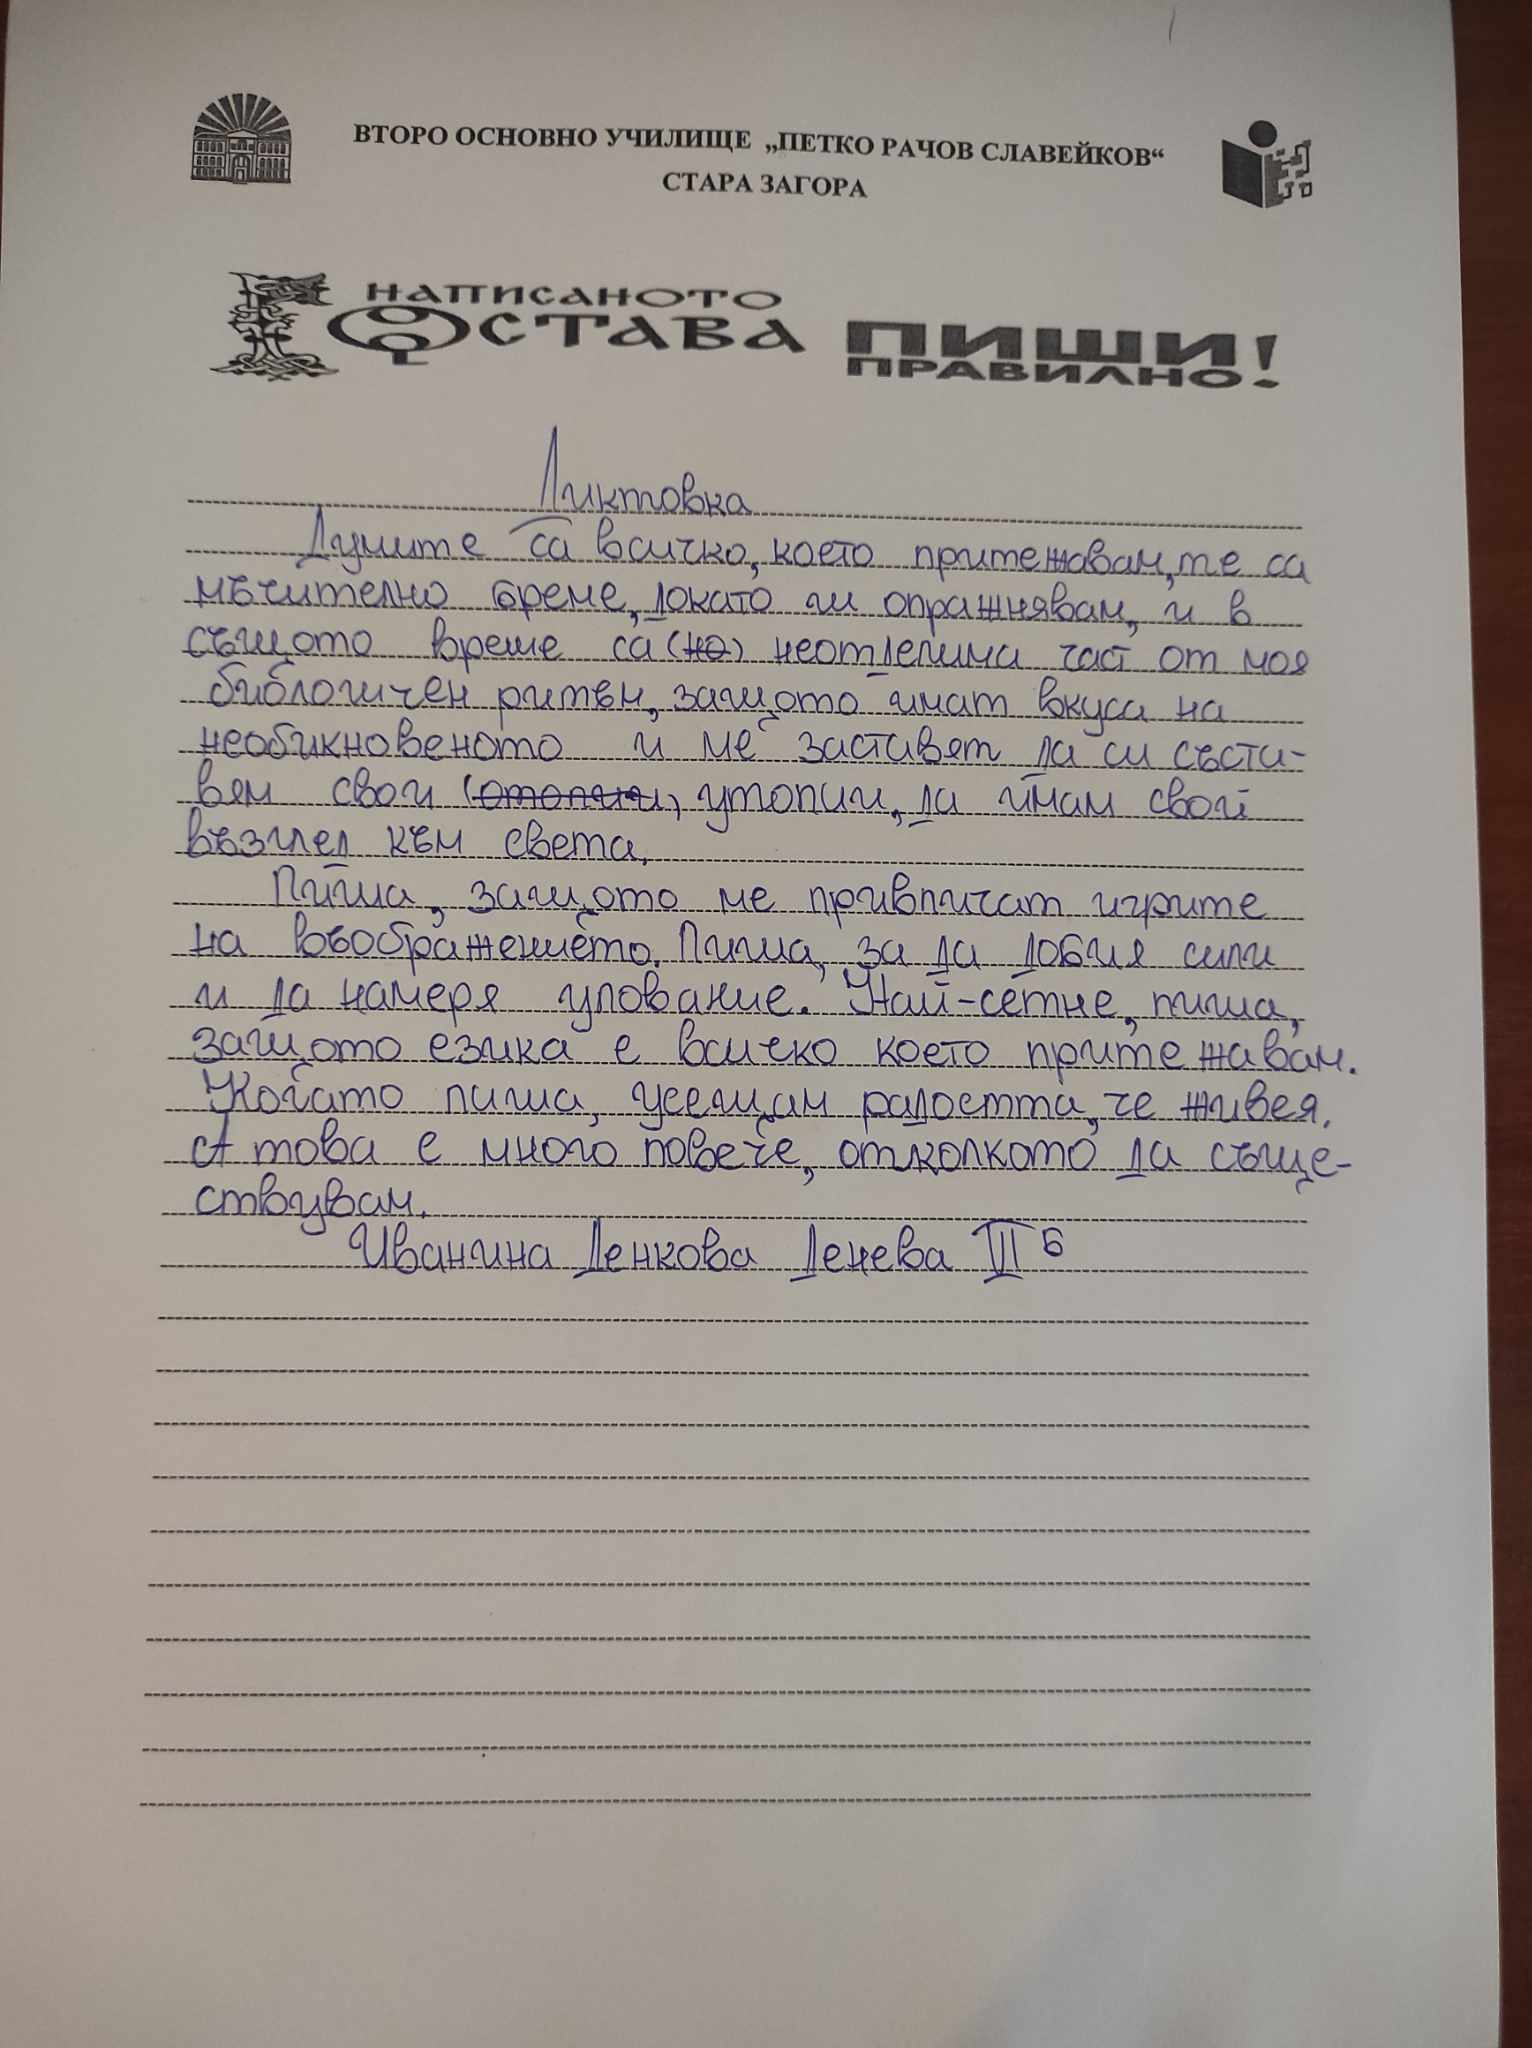 ВТОРО ОСНОВНО УЧИЛИЩЕ „ПЕТКО РАЧОВ СЛАВЕЙКОВ“
СТАРА ЗАГОРА
НАПИСАНОТО
ОСТАВА ПИШИ
ПРАВИЛНО!
Диктовка
Думите са всичко, което притежавам, те са
мъчително бреме, докато ги опражнявам, и в
същото време са (но) неотделима част от моя
библогичен ритъм, защото имат вкуса на
необикновеното и ме заставят да си състи-
вям свои (отопии) утопии, да имам свой
възглед към света.
Пиша, защото ме привличат игрите
на въображението. Пиша, за да добия сили
и да намеря упование. Най-сетне, пиша,
защото езика е всичко което притежавам.
Когато пиша, усещам радостта, че живея.
А това е много повече, отколкото да съще-
ствувам.
Иванина Денкова Денева VII Б